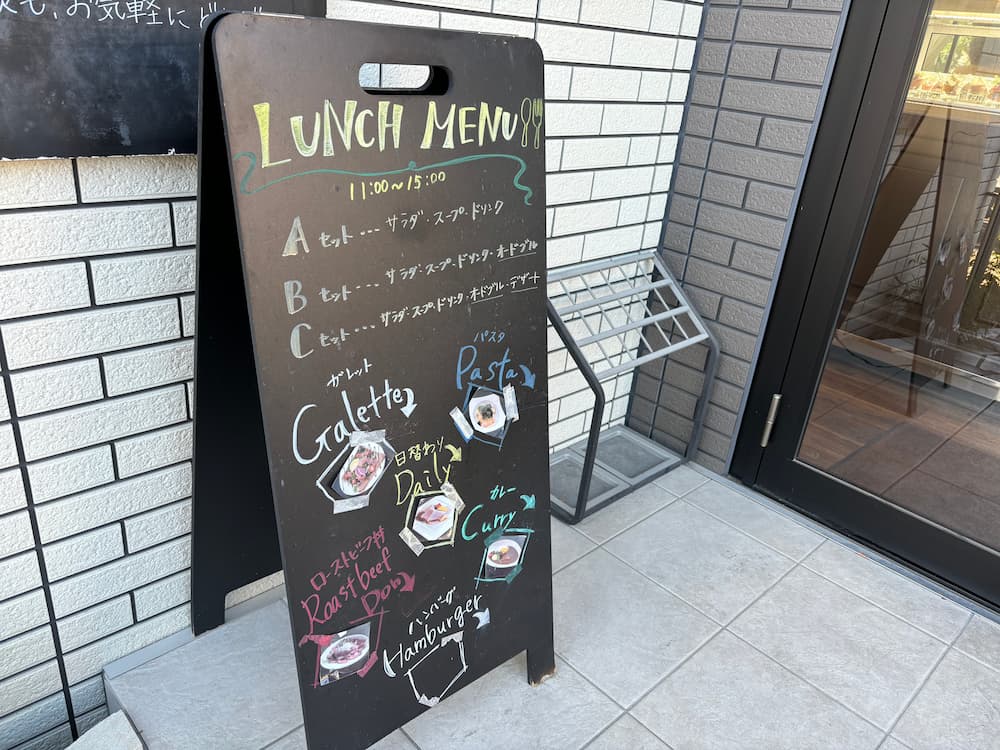 お気軽にど
LUNCH MENU
11:00~15:00
A セット… サラダ・スープ・ドリンク
B セット… サラダ・スープ・ドリンク・オードブル
C セット… サラダ・スープ・ドリンク・オードブル・デザート
パスタ
Pasta
ガレット
Galette
日替わり
Daily
カレー
Curry
ローストビーフ丼
Roastbeef
Don
ハンバーグ
Hamburger